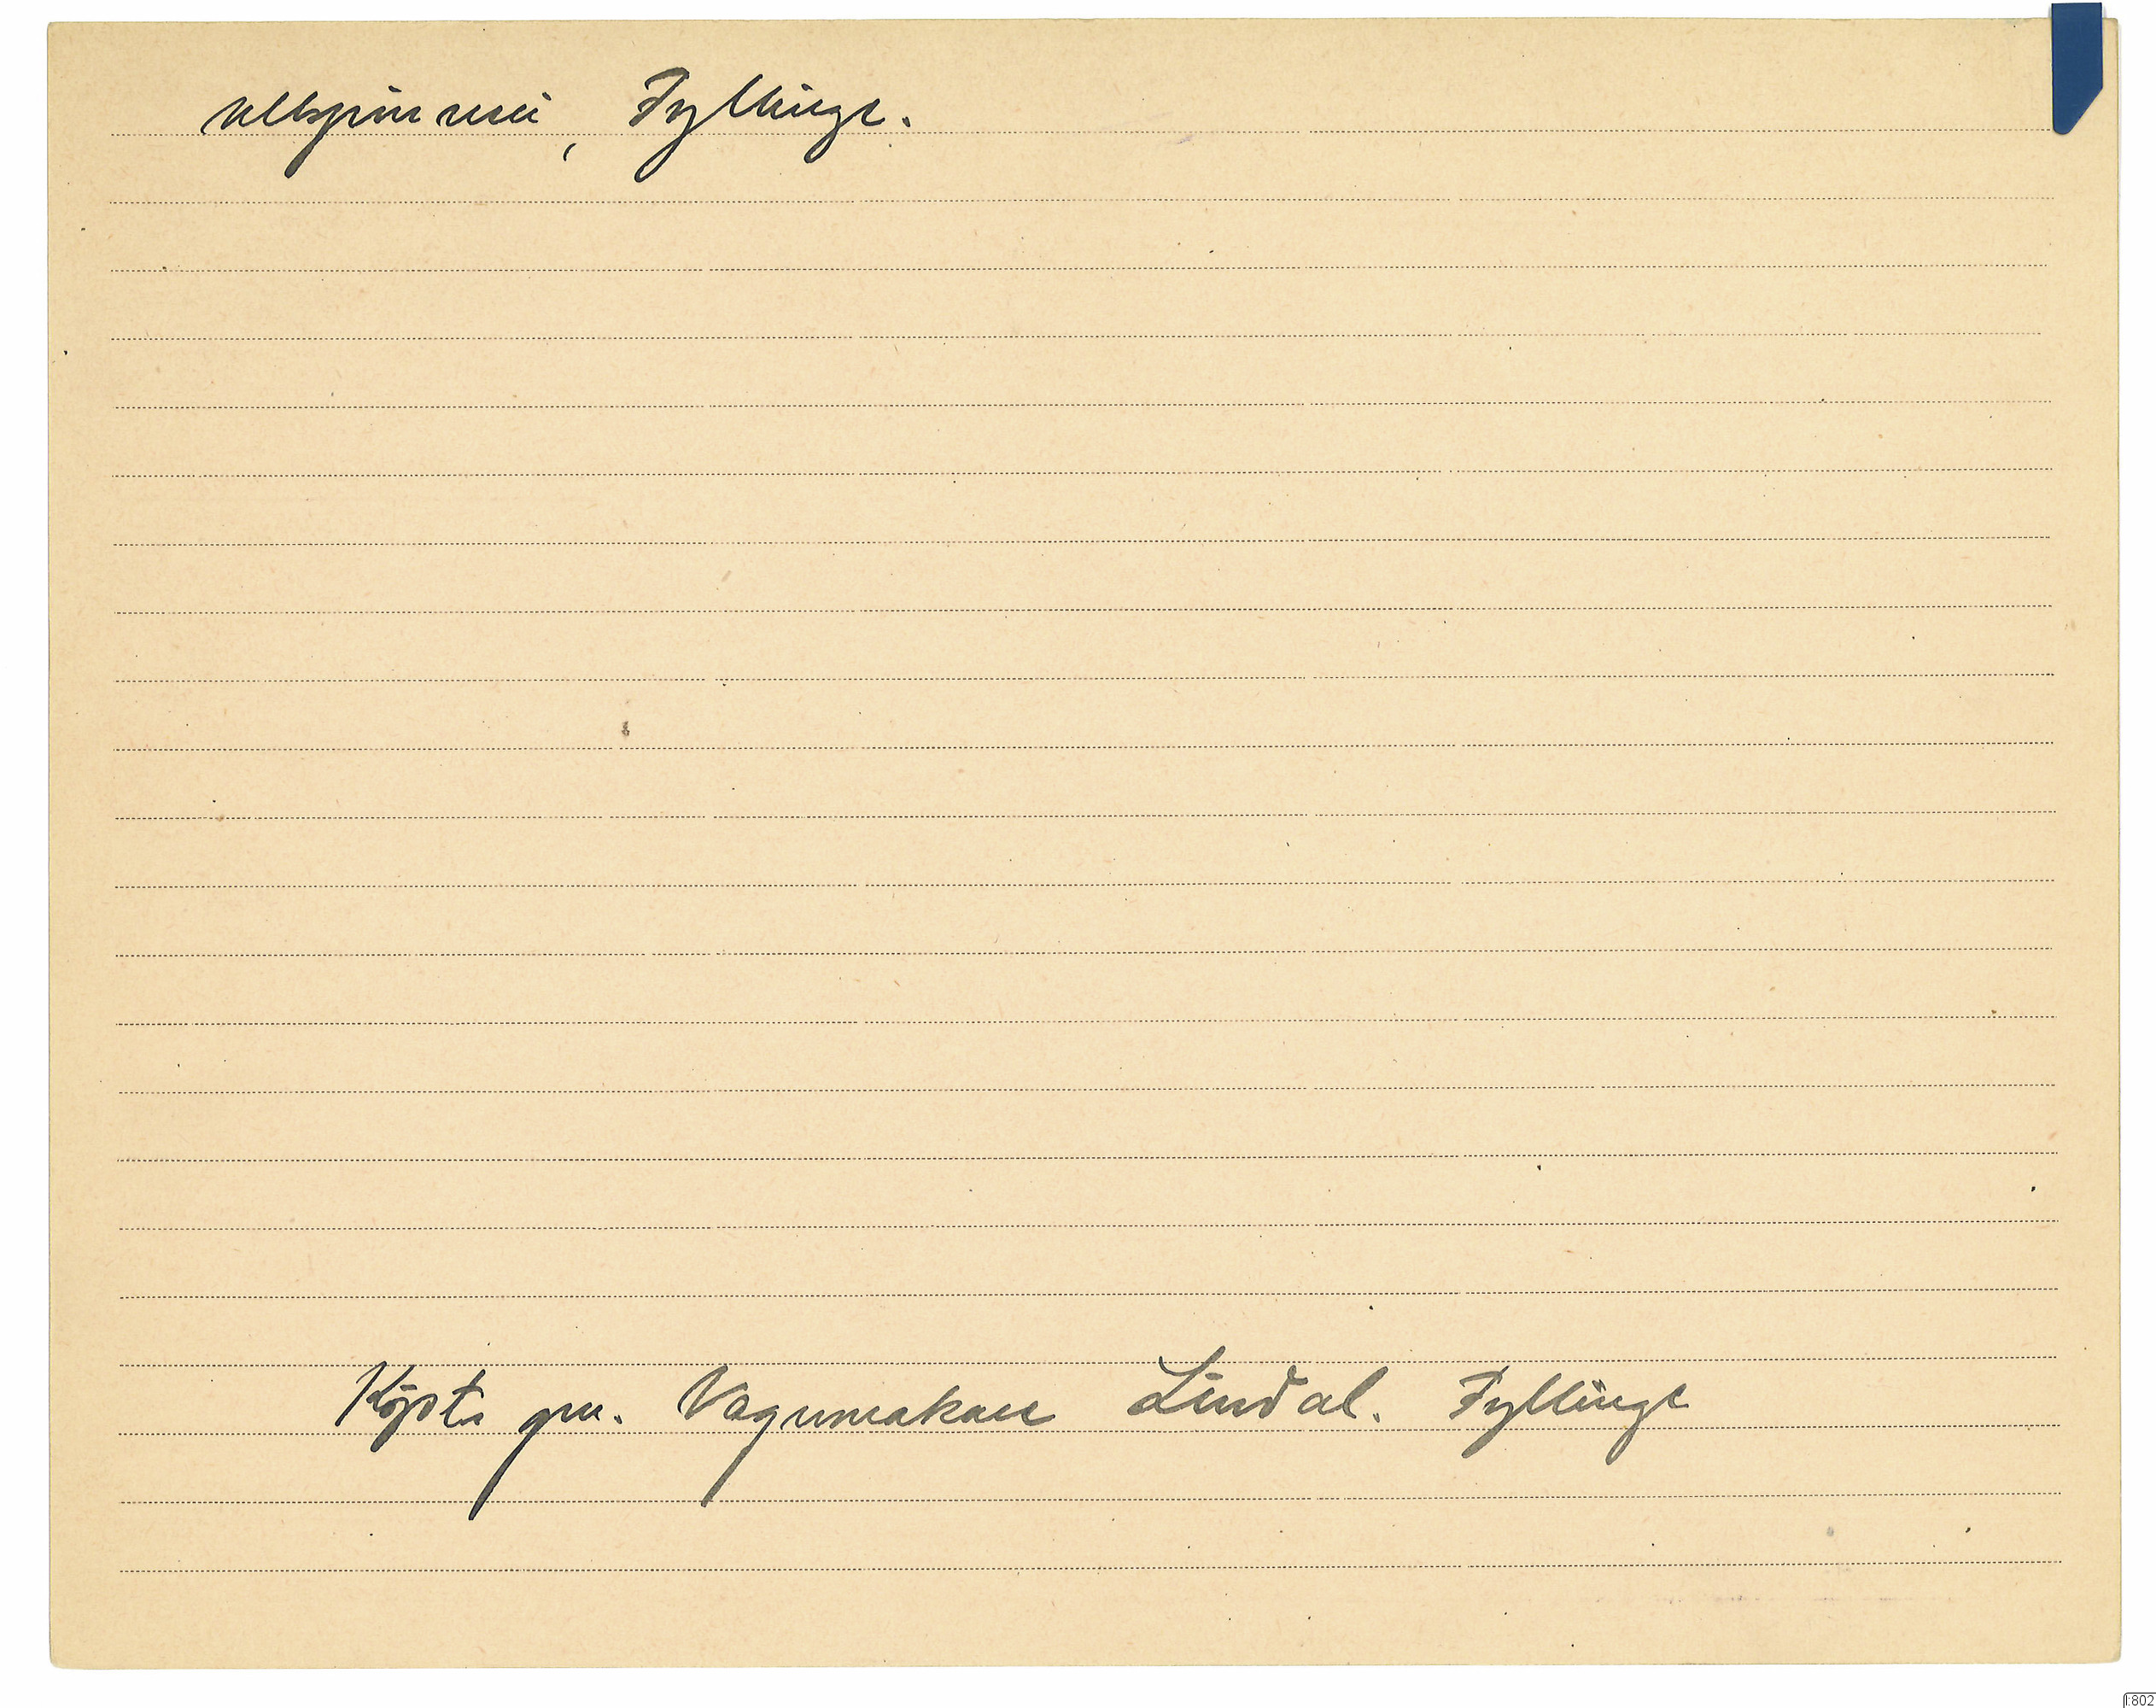 ullspinneri, Fyllinge.
Köpts gm. Vagnmakare Lindal. Fyllinge
I:802